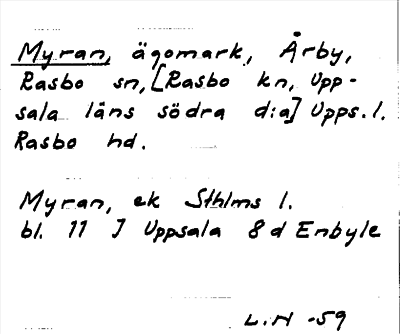 Myran, ägomark, Årby,
Rasbo sn, [Rasbo kn, Upp-
sala läns södra d:a] Upps. l.
Rasbo hd.
Myran, ek Sthlms l.
bl. 11 J Uppsala 8 d Enbyle
L.H -59